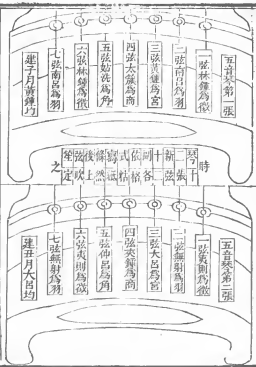 五音琴第一張
一弦林鐘爲徵
二弦南呂爲羽
三弦黃鐘爲宮
四弦太簇爲商
五弦姑洗爲角
六弦林鐘爲徵
七弦南呂爲羽
建子月黃鐘均
時
琴十
二張
新弦
十
副各
依格
式粘
寫紙
條然
後上
弦吹
笙定
之
五音琴第二張
一弦夷則爲徵
二弦無射爲羽
三弦大呂爲宮
四弦夾鐘爲商
五弦仲呂爲角
六弦夷則爲徵
七弦無射爲羽
建丑月大呂均